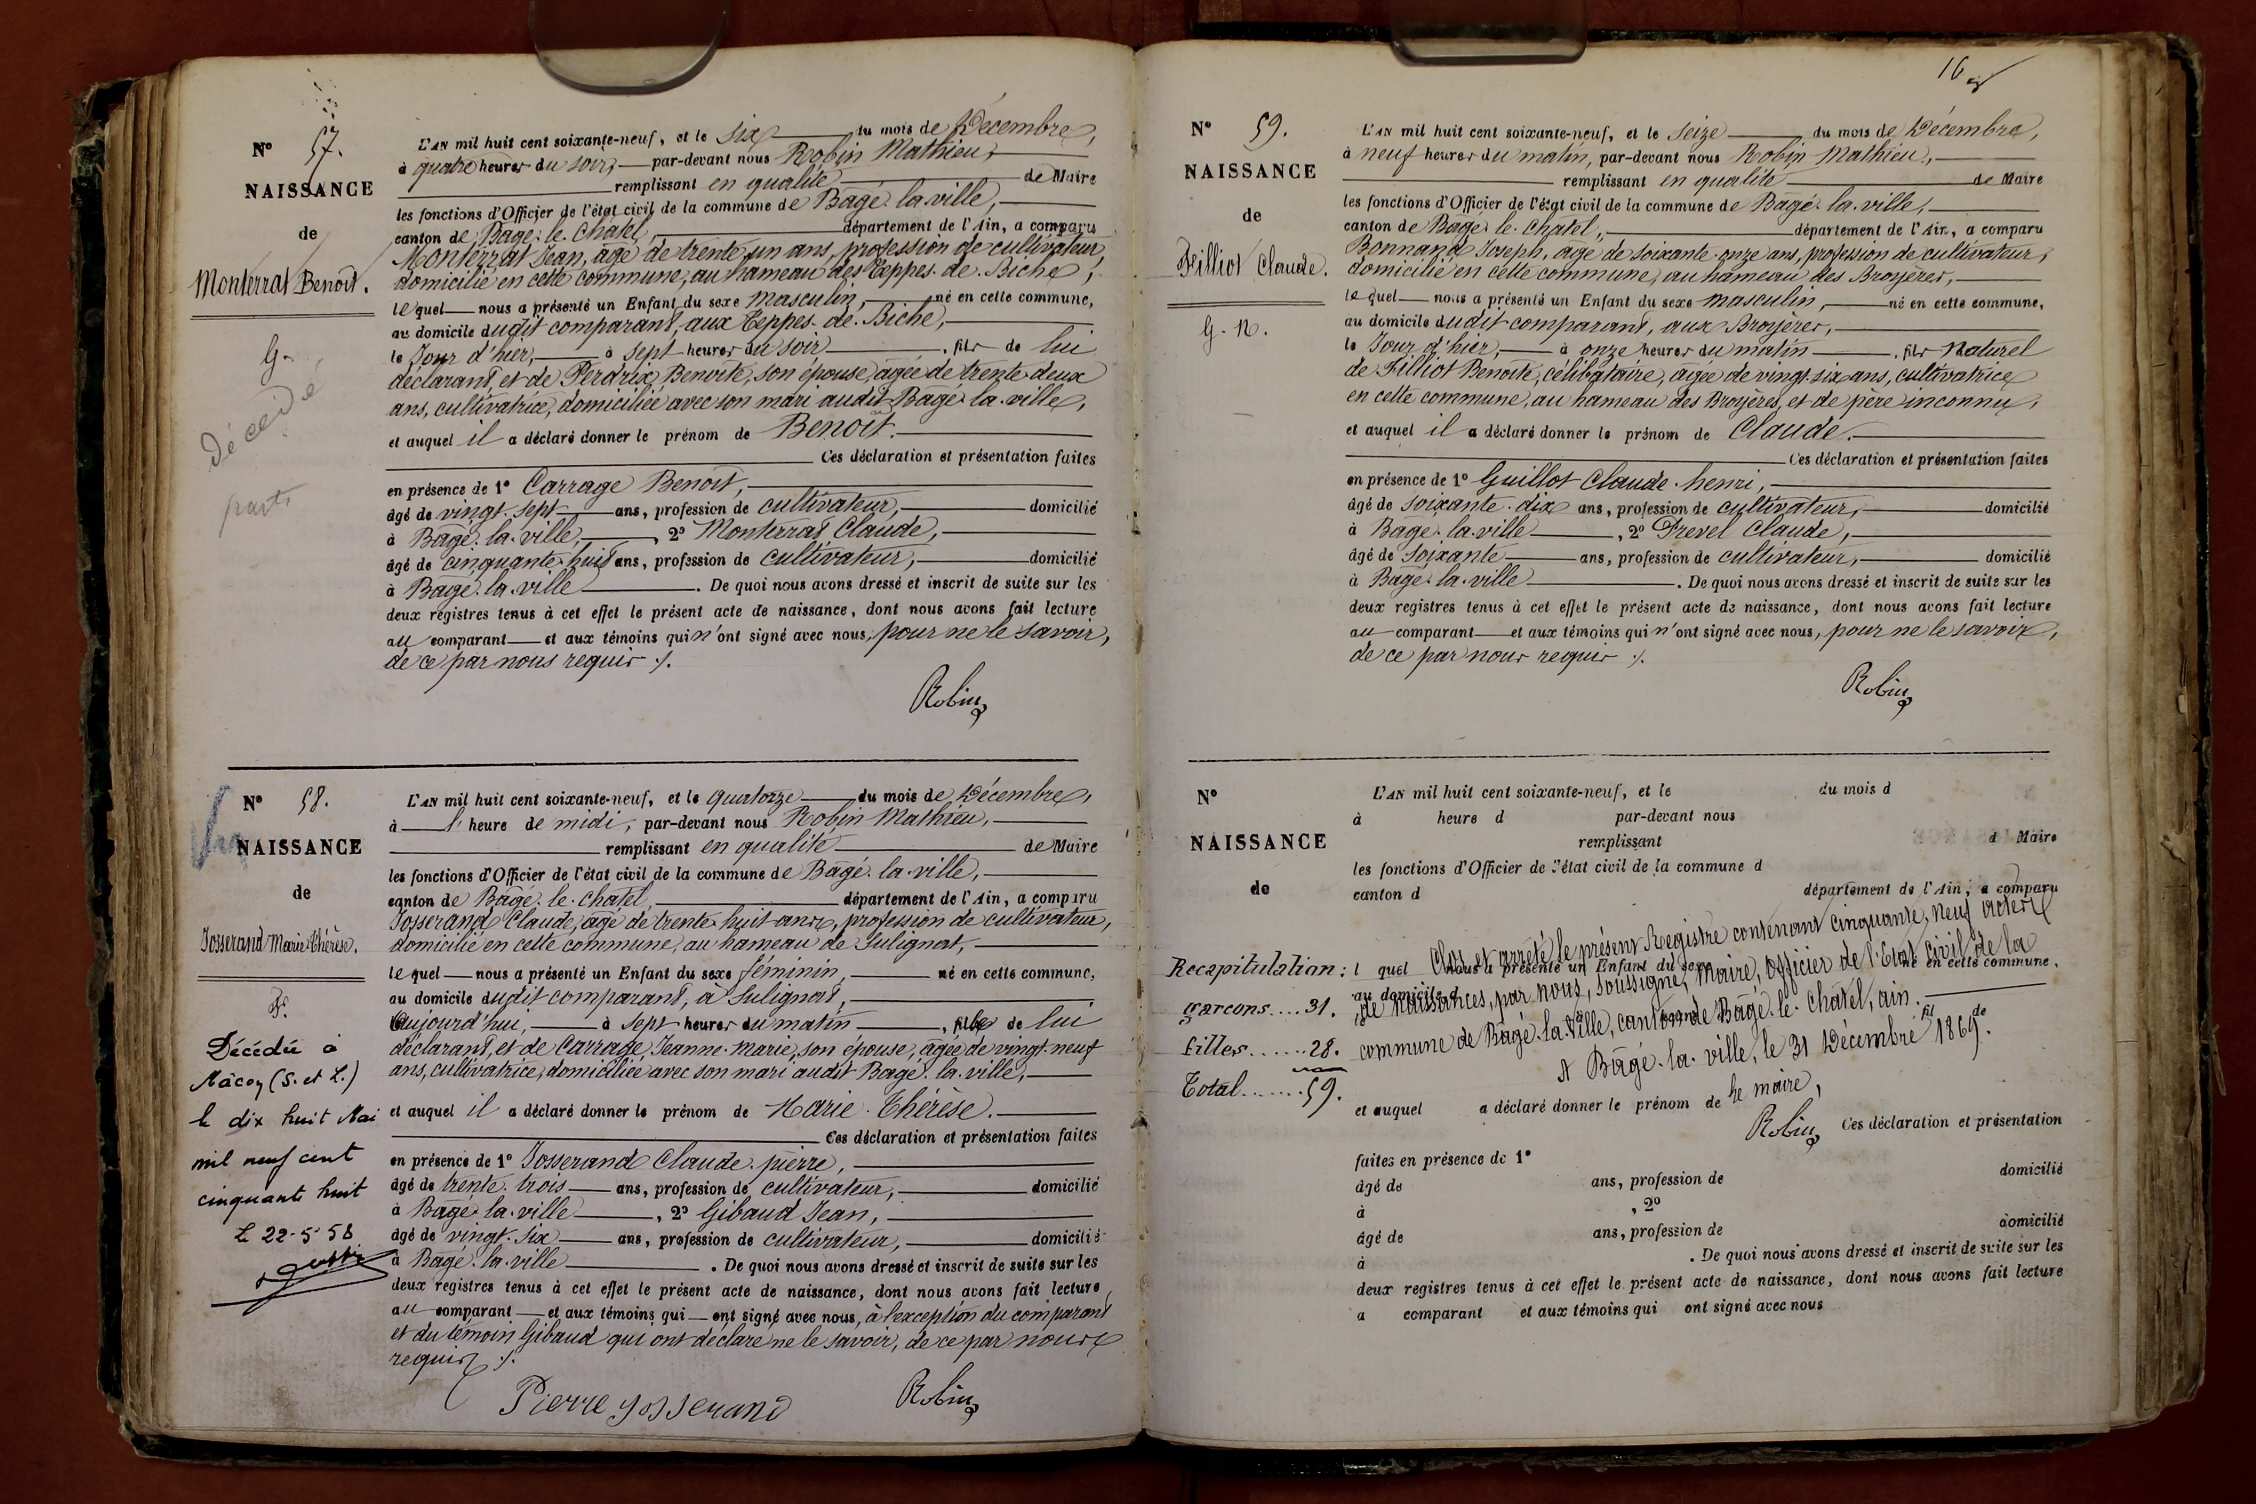 N° 57.
NAISSANCE
de
Monterrat Benoit.
G.
décédé
L'AN mil huit cent soixante-neuf, et le six du mois de Décembre,
à quatre heures du soir, par-devant nous Robin Mathieu,
remplissant en qualité de Maire
les fonctions d'Officier de l'état civil de la commune de Bagé-la-ville,
canton de Bagé-le-Châtel, département de l'Ain, a comparu
Monterrat Jean, âgé de trente-un ans, profession de cultivateur,
domicilié en cette commune, au hameau des Teppes-de-Biche,
lequel nous a présenté un Enfant du sexe masculin, né en cette commune,
au domicile dudit comparant, aux Teppes-de-Biche,
le Jour d'hier, à sept heures du soir, fils de lui
déclarant, et de Perdrix Benoite, son épouse, âgée de trente-deux
ans, cultivatrice, domiciliée avec son mari audit Bagé-la-ville,
et auquel il a déclaré donner le prénom de Benoit.
Ces déclaration et présentation faites
en présence de 1° Carrage Benoit,
âgé de vingt-sept ans, profession de cultivateur, domicilié
à Bagé-la-ville, 2° Monterrat Claude,
âgé de cinquante-huit ans, profession de cultivateur, domicilié
à Bagé-la-ville. De quoi nous avons dressé et inscrit de suite sur les
deux registres tenus à cet effet le présent acte de naissance, dont nous avons fait lecture
au comparant et aux témoins qui n'ont signé avec nous, pour ne le savoir,
de ce par nous requis ./.
Robin
N° 58.
NAISSANCE
de
Josserand Marie Thérèse.
F.
Décédée à
Mâcon (S. et L.)
le dix huit Mai
mil neuf cent
cinquante huit
L 22-5-58
L'AN mil huit cent soixante-neuf, et le quatorze du mois de Décembre,
à l'heure de midi, par-devant nous Robin Mathieu,
remplissant en qualité de Maire
les fonctions d'Officier de l'état civil de la commune de Bagé-la-ville,
canton de Bagé-le-Chatel, département de l'Ain, a comparu
Josserand Claude, âgé de trente-huit ans, profession de cultivateur,
domicilié en cette commune, au hameau de Sulignat,
lequel nous a présenté un Enfant du sexe féminin, né en cette commune,
au domicile dudit comparant, à Sulignat,
aujourd'hui, à sept heures du matin, fille de lui
déclarant, et de Carrage Jeanne-Marie, son épouse, âgée de vingt-neuf
ans, cultivatrice, domiciliée avec son mari audit Bagé-la-ville,
et auquel il a déclaré donner le prénom de Marie-Thérèse.
Ces déclaration et présentation faites
en présence de 1° Josserand Claude-pierre,
âgé de trente-trois ans, profession de cultivateur, domicilié
à Bagé-la-ville, 2° Gibaud Jean,
âgé de vingt-six ans, profession de cultivateur, domicilié
à Bagé-la-ville. De quoi nous avons dressé et inscrit de suite sur les
deux registres tenus à cet effet le présent acte de naissance, dont nous avons fait lecture
au comparant et aux témoins qui ont signé avec nous, à l'exception du comparant
et du témoin Gibaud qui ont déclaré ne le savoir, de ce par nous
requis ./.
Pierre Josserand
Robin
16
N° 59.
NAISSANCE
de
Filliot Claude.
G. N.
L'AN mil huit cent soixante-neuf, et le seize du mois de Décembre,
à neuf heures du matin, par-devant nous Robin Mathieu,
remplissant en qualité de Maire
les fonctions d'Officier de l'état civil de la commune de Bagé-la-ville,
canton de Bagé-le-Chatel, département de l'Ain, a comparu
Bonnand Joseph, âgé de soixante-onze ans, profession de cultivateur,
domicilié en cette commune, au hameau des Broyères,
lequel nous a présenté un Enfant du sexe masculin, né en cette commune,
au domicile dudit comparant, aux Broyères,
le Jour d'hier, à onze heures du matin, fils Naturel
de Filliot Benoite, célibataire, âgée de vingt-six ans, cultivatrice
en cette commune, au hameau des Broyères, et de père inconnu,
et auquel il a déclaré donner le prénom de Claude.
Ces déclaration et présentation faites
en présence de 1° Guillot Claude-henri,
âgé de soixante-dix ans, profession de cultivateur, domicilié
à Bagé-la-ville, 2° Frevel Claude,
âgé de soixante ans, profession de cultivateur, domicilié
à Bagé-la-ville. De quoi nous avons dressé et inscrit de suite sur les
deux registres tenus à cet effet le présent acte de naissance, dont nous avons fait lecture
au comparant et aux témoins qui n'ont signé avec nous, pour ne le savoir,
de ce par nous requis ./.
Robin
N°
NAISSANCE
de
Recapitulation:
garcons....31.
filles......28.
Total.......59.
L'AN mil huit cent soixante-neuf, et le du mois d
à heure d par-devant nous
remplissant d Maire
les fonctions d'Officier de l'état civil de la commune d
canton d département de l'Ain, a comparu
l quel nous a présenté un Enfant du sexe né en cette commune,
au domicile d
fil de
Clos et arrêté le présent Registre contenant cinquante-neuf actes
de Naissances, par nous, soussigné, Maire, officier de l'Etat civil de la
commune de Bagé-la-Ville, canton de Bagé-le-Chatel, ain.
A Bagé-la-ville, le 31 Décembre 1869.
le maire,
Robin
et auquel a déclaré donner le prénom de
Ces déclaration et présentation
faites en présence de 1°
âgé de ans, profession de domicilié
à , 2°
âgé de ans, profession de domicilié
à . De quoi nous avons dressé et inscrit de suite sur les
deux registres tenus à cet effet le présent acte de naissance, dont nous avons fait lecture
a comparant et aux témoins qui ont signé avec nous